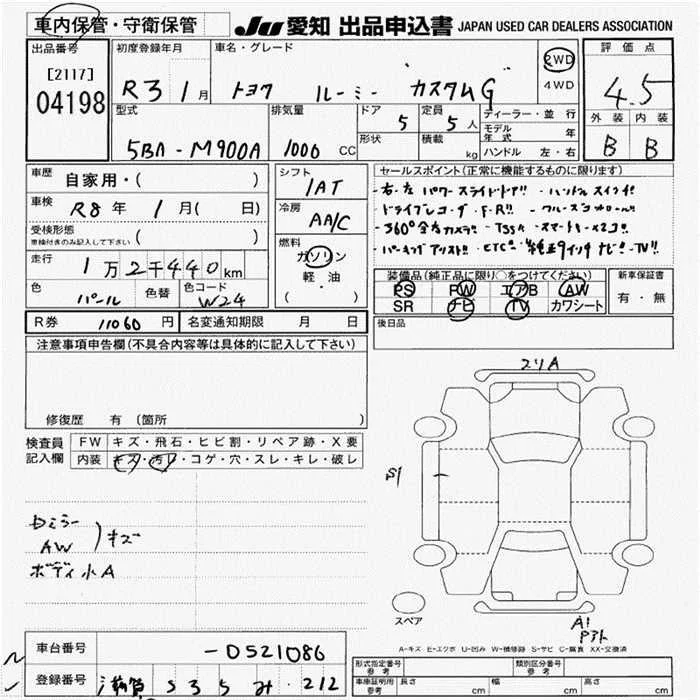 車内保管・守衛保管
JU 愛知 出品申込書 JAPAN USED CAR DEALERS ASSOCIATION
出品番号
[2117]
04198
初度登録年月
R3 1月
車名・グレード
トヨタ ルーミー カスタムG
2WD
4WD
評価点
4.5
外装 内装
B B
型式
5BA-M900A
排気量
1000 CC
ドア
5
形状
定員
5人
積載
kg
ディーラー・並行
モデル年式 年
ハンドル 左・右
車歴
自家用・( )
車検
R8年 1月( 日)
受検形態
車検付きのみ記入して下さい ( )
走行
1万2千440km
色
パール
色替
色コード
W24
シフト
IAT
冷房
AA/C
燃料
ガソリン
軽・油
( )
セールスポイント(正常に機能するものに限ります)
・右・左 パワースライドドア!! ・ハンドルスイッチ!!
・ドライブレコーダ・F・R!! ・クルーズコントロール!!
・360°全方カメラ!! ・TSSA ・スマートキー×2コ!!
・パーキングアシスト!! ・ETC!! ・純正9インチナビ!!・TV!!
装備品(純正品に限り○をつけてください)
PS PW エアB AW
SR ナビ TV カワシート
新車保証書
有・無
後日品
R券 11060円
名変通知期限 月 日
注意事項申告欄(不具合内容等は具体的に記入して下さい)
修復歴 有 (箇所 )
検査員記入欄
FW キズ・飛石・ヒビ割・リペア跡・X要
内装 キズ・汚レ・コゲ・穴・スレ・キレ・破レ
左ミラー
AW
)キズ
ボディ小A
スリA
S1
スペア
A1
Pアト
A-キズ E-エクボ U-凹み W-補修跡 S-サビ C-腐食 XX-交換済
車台番号
-0521086
登録番号
滋賀 535 み・212
形式指定番号 参考
類別区分番号 参考
車庫証明用 参考
長さ cm 幅 cm 高さ cm